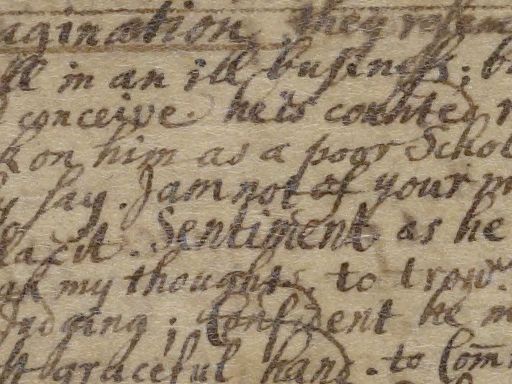 agination they
ll in an ill busines; b
conceive. he is counted
k on him as a poor Schol
say. I am not of your m
lax it. Sentiment as he
ak my thoughts. to trow.
droging; Confident he m
th graceful hand. to Com̄